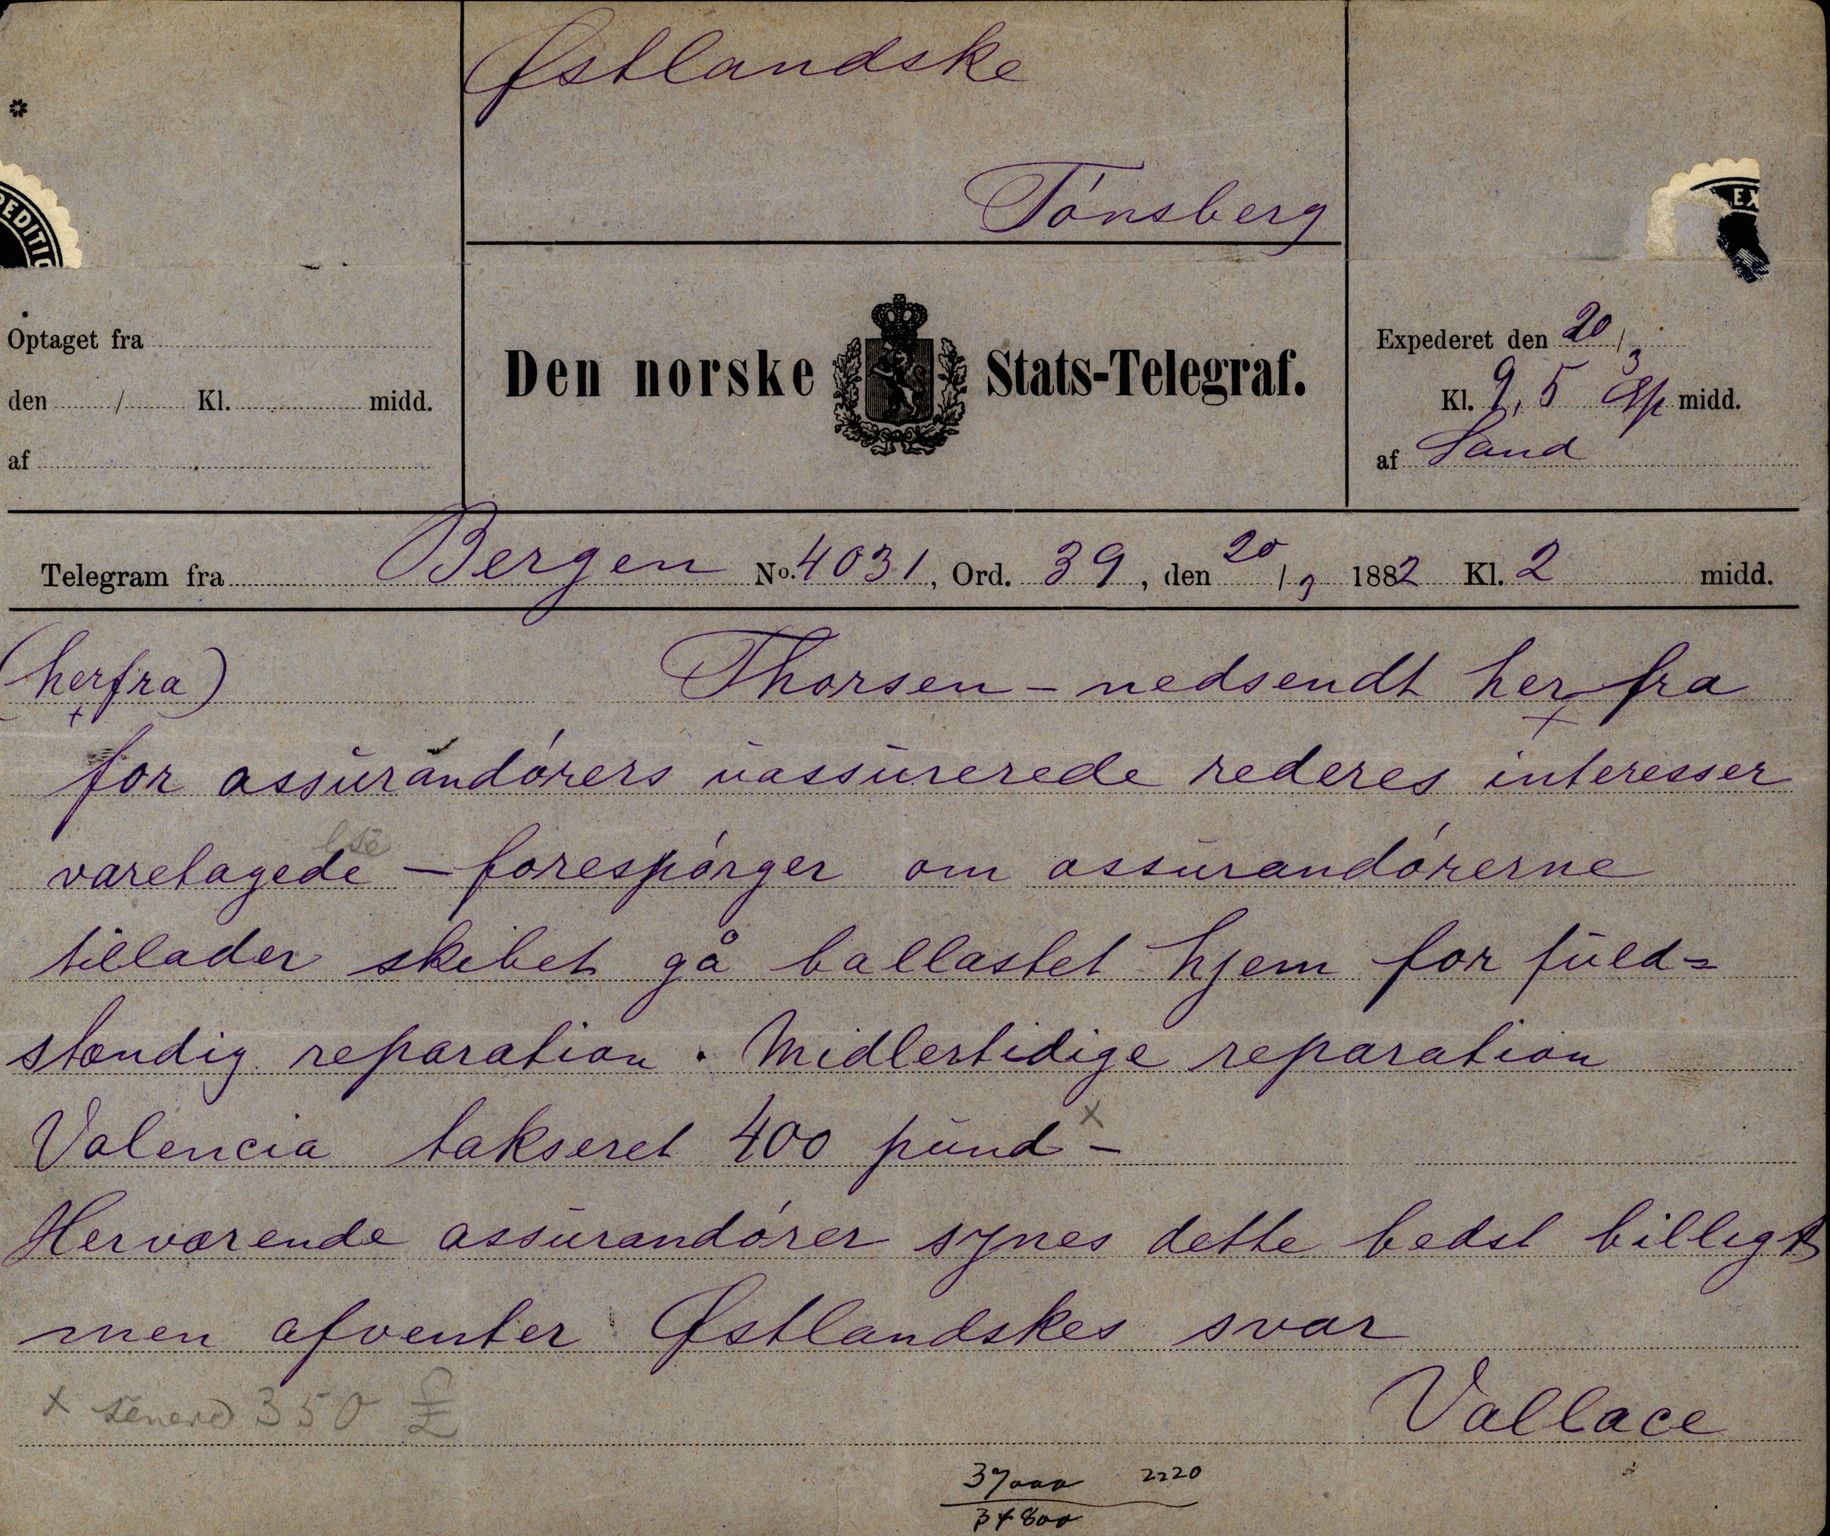 Østlandske
Tónsberg
*
PEDITIO
EX
Optaget fra
den / Kl. midd.
af
Den norske Stats-Telegraf.
Expederet den 20/3
Kl. 9,5 Ep midd.
af Sand
Telegram fra Bergen No. 4031, Ord. 39, den 20/3 1882 Kl. 2 midd.
(herfra) Thorsen – nedsendt her fra
for assurandórers uassurerede rederes interesser
varetagede – forespórger om assurandórerne
lse
tillader skibet gå ballastet hjem for fuld=
stændig reparation . Midlertidige reparation
Valencia takseret 400 pund x –
Herværende assurandórer synes dette bedst billigst
men afventer Østlandskes svar
x senere 350 £
Vallace
37000 2220
34800